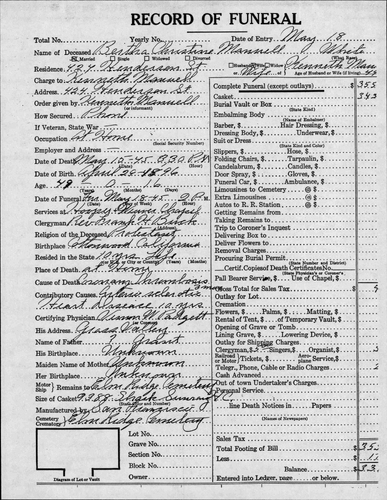 RECORD OF FUNERAL
Total No. Yearly No. Date of Entry May 18
Name of Deceased Bertha Christine Manuell White
Married Single Widowed Divorced
Residence 424 Henderson St. Husband Wife Kenneth Man
Charge to Kenneth Manuell Age of Husband or Wife (if living)
Address 424 Henderson St.
Order given by Kenneth Manuell
(or informant)
How Secured Phone
If Veteran, State War
Occupation At Home
Date of Death May 15-45 P.M.
Date of Birth April 29-1896
Age 49 0 16
(Years) (Months) (Days)
Date of Funeral May 18-45 2 P.M.
Services at Hooper Weaver Chapel
Clergyman Rev
Religion of the Deceased Protestant
Birthplace California
Resided in the State 10 yrs
Place of Death At Home
Cause of Death Coronary Thrombosis
Contributory Causes
Heart Disease 10 yrs
Certifying Physician
His Address Grass Valley
Name of Father Grant
His Birthplace Unknown
Maiden Name of Mother Unknown
Her Birthplace Unknown
Motor Ship Remains to Elm Ridge Cemetery
Size of Casket
(Style and Number)
Manufactured by San Francisco
Cemetery Crematory Elm Ridge Cemetery
Lot No.
Grave No.
Section No.
Block No.
Owner
Diagram of Lot or Vault
Complete Funeral (except outlays) $ 355
Casket 343
Burial Vault or Box
(State Kind)
Embalming Body
(Name of Embalmer)
Barber, $ Hair Dressing, $
Dressing Body, $ Underwear, $
Suit or Dress
(State Kind)
Slippers, $ Hose, $
Folding Chairs, $ Tarpaulin, $
Candelabrum, $ Candles, $
Door Spray, $ Gloves, $
Funeral Car, $ Ambulance, $
Limousines to Cemetery @ $
Extra Limousines @ $
Autos to R. R. Station @ $
Getting Remains from
Taking Remains to
Trip to Coroner's Inquest
Delivering Box to
Deliver Flowers to
Removal Charges
Procuring Burial Permit
(State Number and District)
Certified Copies Death Certificates
(State Physician's or Coroner's)
Pall Bearer Service, $ Use of Chapel, $
Sales Tax $
Outlay for Lot
Cremation
Flowers, $ Palms, $ Matting, $
Rental of Tent, $ of Temporary Vault, $
Opening of Grave or Tomb
Lining Grave, $ Lowering Device, $
Outlay for Shipping Charges
Clergyman, $ Singers, $ Organist, $
Railroad Motor Tickets, $ Aeroplane Service, $
Telegr., Phone, Cable or Radio Charges $
Cash Advanced $
Out of town Undertaker's Charges
Personal Service
line Death Notices in Papers
Sales Tax $
Total Footing of Bill $ 35
Less $
Balance $
Entered into Ledger, page or below.